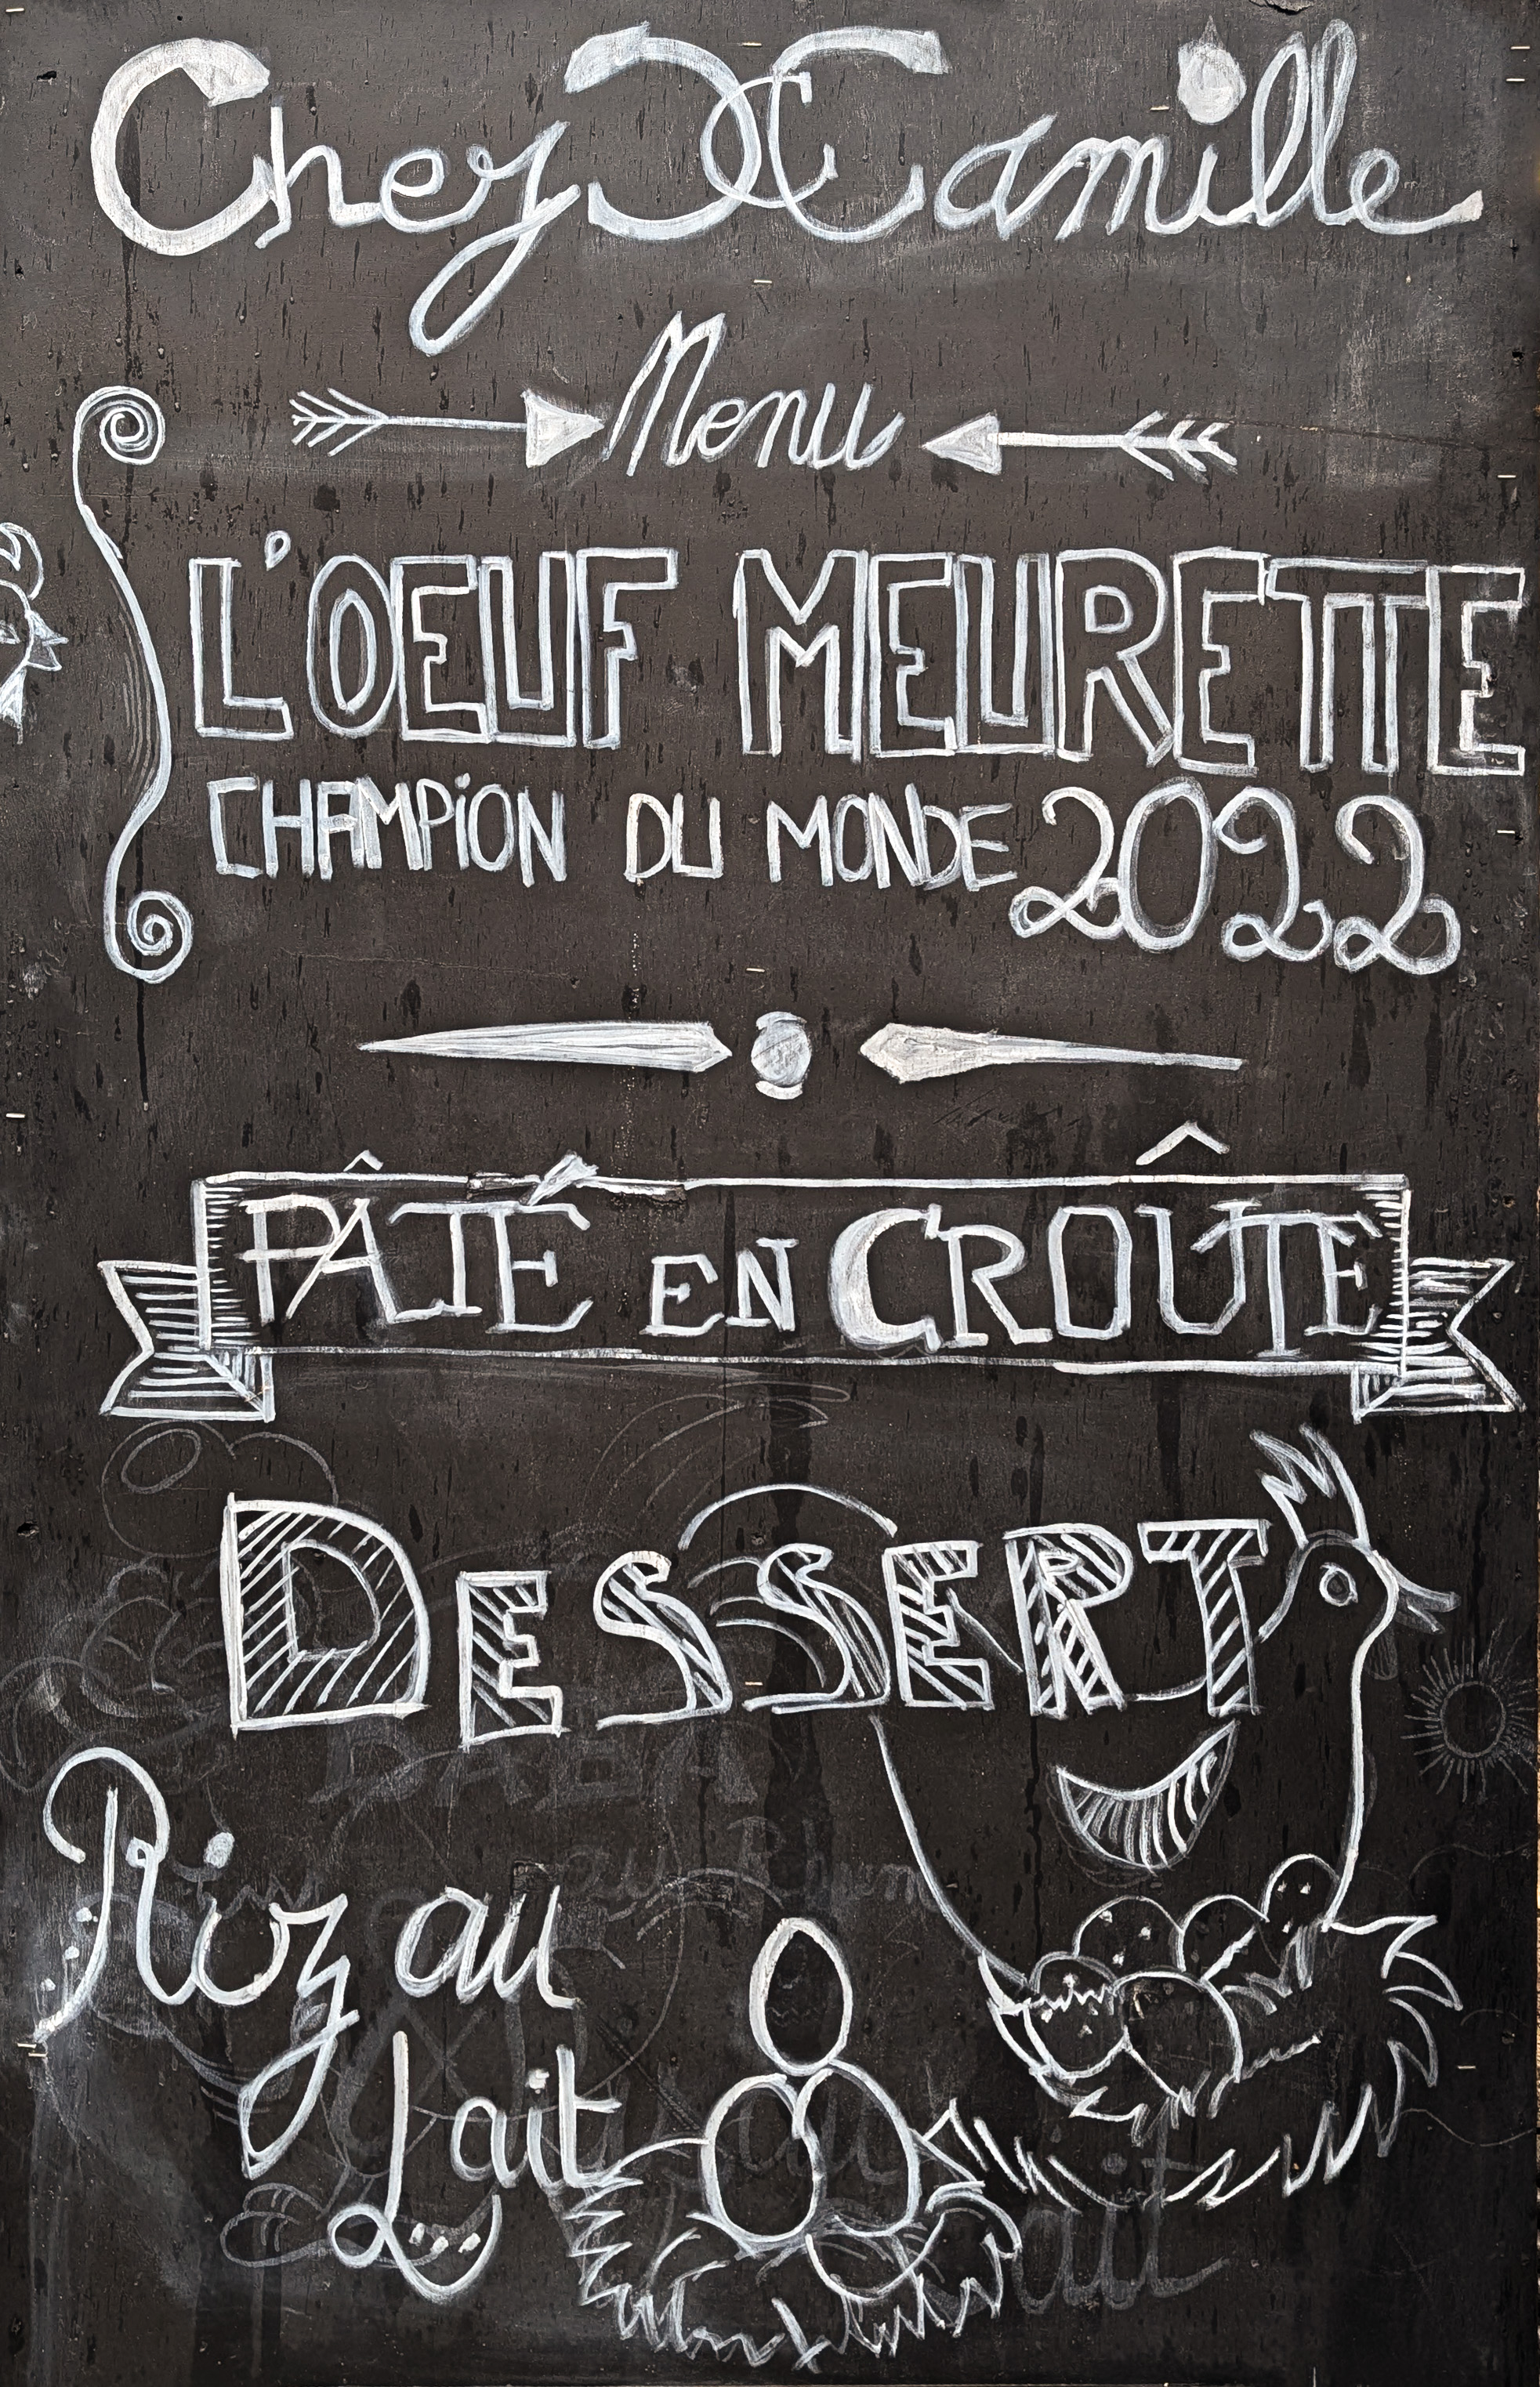 Chez Camille
Menu
L'OEUF MEURETTE
CHAMPiON DU MONDE 2022
PÂTÉ EN CROÛTE
DESSERT
Riz au
Lait